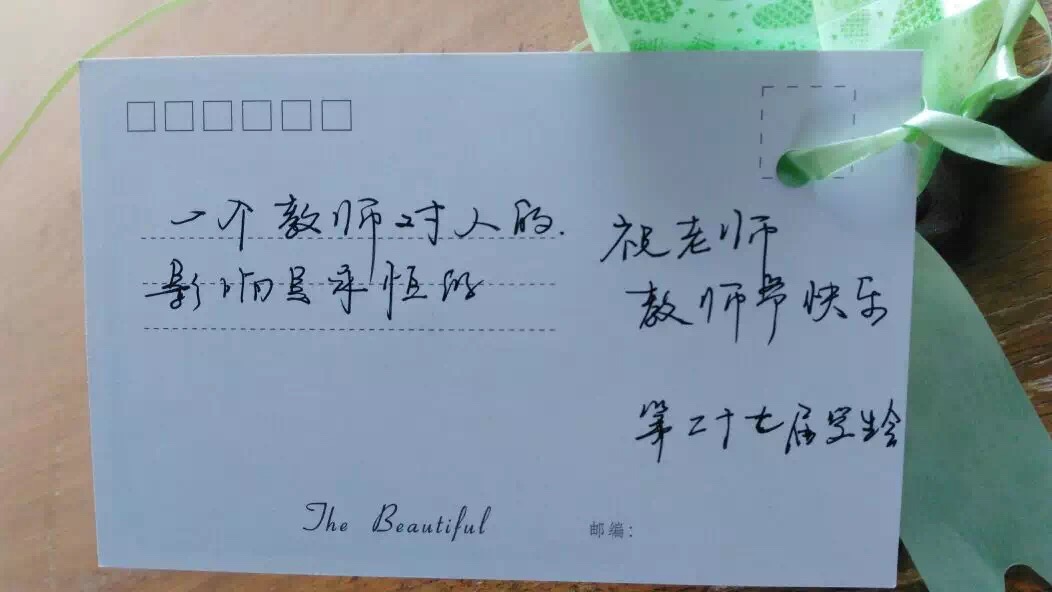 一个教师对人的.
影响是永恒的
祝老师
教师节快乐
第二十七届学生会
The Beautiful
邮编: